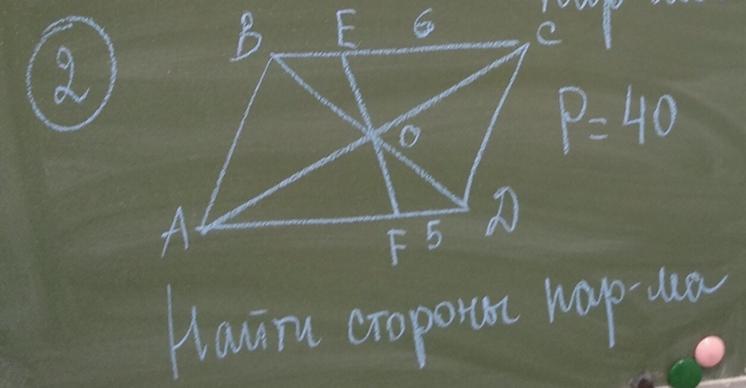 2
B E 6 C
O
P=40
A F 5 D
Найти стороны пар-ма